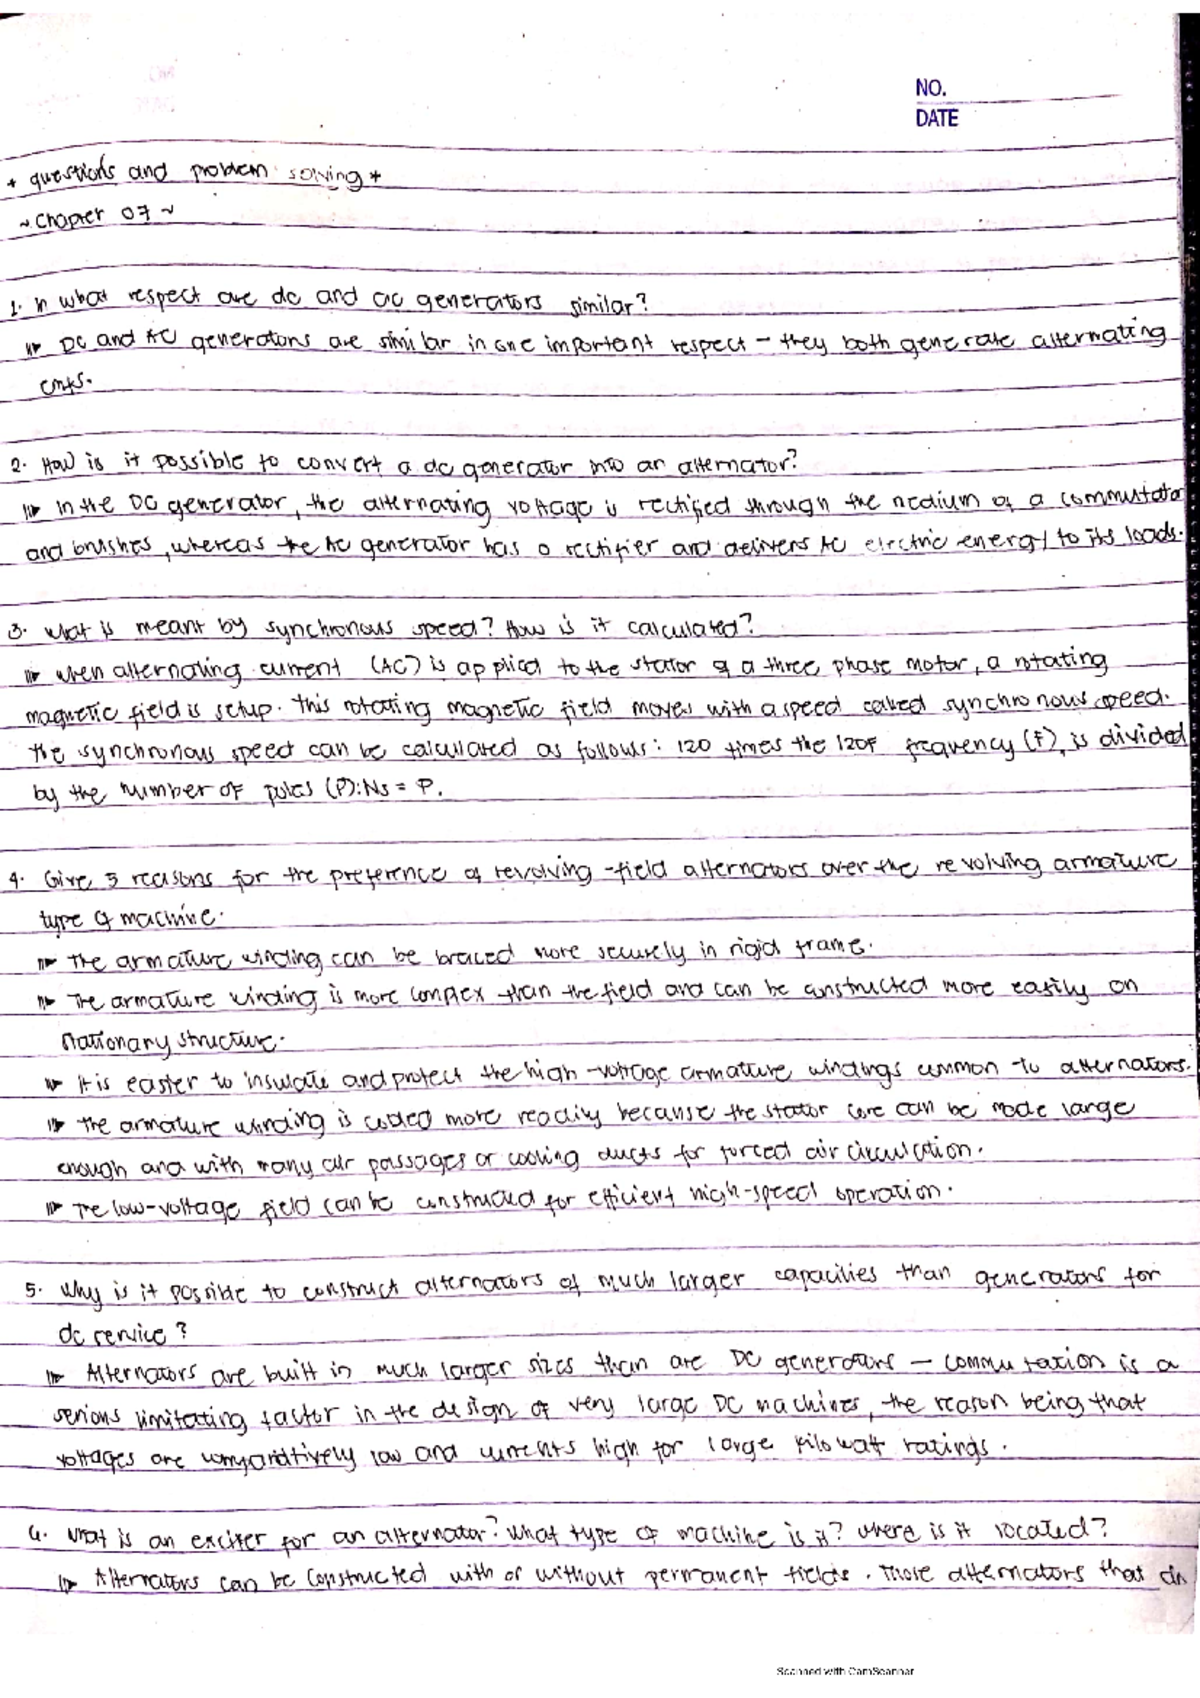 NO.
DATE
* questions and problem solving *
~ Chapter 07 ~
1. In what respect are dc and ac generators similar?
DC and AC generators are similar in one important respect - they both generate alternating
emfs.
2. How is it possible to convert a dc generator into an alternator?
In the DC generator, the alternating voltage is rectified through the medium of a commutator
and brushes, whereas the AC generator has o rectifier and delivers AC electric energy to its loads.
3. What is meant by synchronous speed? How is it calculated?
When alternating current (AC) is applied to the stator of a three phase motor, a rotating
magnetic field is setup. This rotating magnetic field moves with a speed called synchronous speed.
The synchronous speed can be calculated as follows: 120 times the 120F frequency (F), is divided
by the number of poles (P): Ns = P.
4. Give 5 reasons for the preference of revolving-field alternators over the revolving armature
type of machine.
The armature winding can be braced more securely in rigid frame.
The armature winding is more complex than the field and can be constructed more easily on
stationary structure.
It is easier to insulate and protect the high-voltage armature windings common to alternators.
The armature winding is cooled more readily because the stator core can be made large
enough and with many air passages or cooling ducts for forced air circulation.
The low-voltage field can be constructed for efficient high-speed operation.
5. Why is it possible to construct alternators of much larger capacities than generators for
dc service?
Alternators are built in much larger sizes than are DC generators - commutation is a
serious limitating factor in the design of very large DC machines, the reason being that
voltages are comparatively low and currents high for large kilowatt ratings.
6. What is an exciter for an alternator? What type of machine is it? Where is it located?
Alternators can be constructed with or without permanent fields. Those alternators that do
Scanned with CamScanner